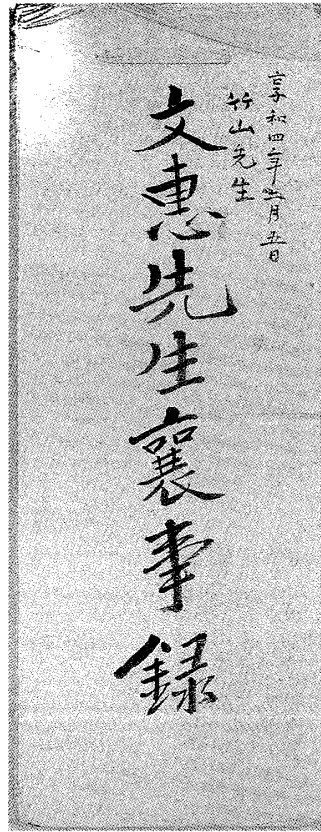 享和四年二月五日
竹山先生
文惠先生襄事録